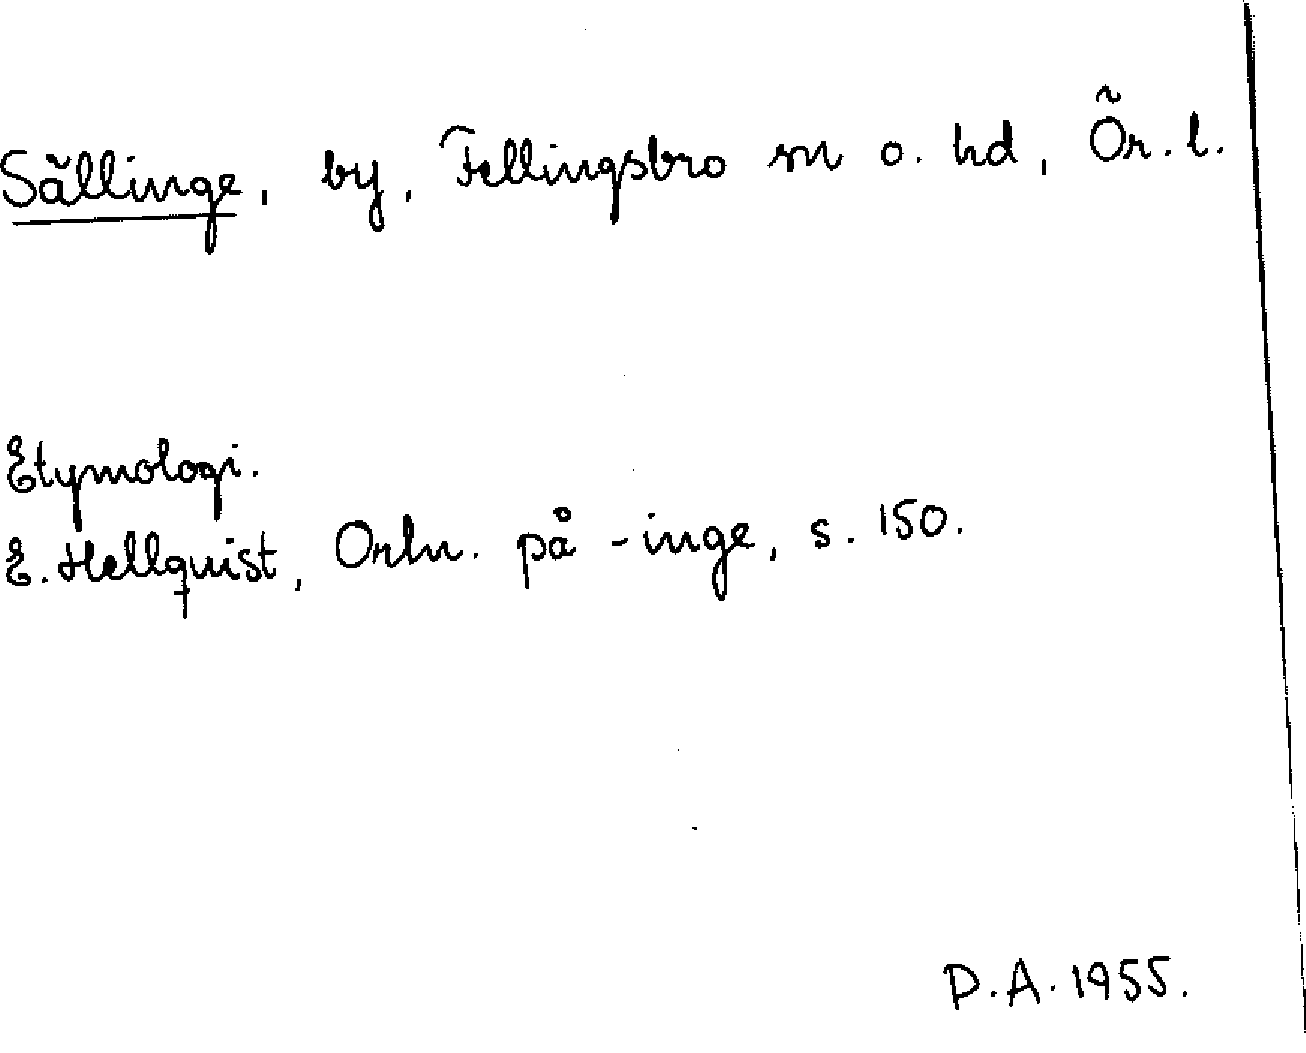 Sällinge, by, Fellingsbro sn o. hd, Ör. l.
Etymologi.
E. Hellquist, Ortn. på -inge, s. 150.
D.A. 1955.